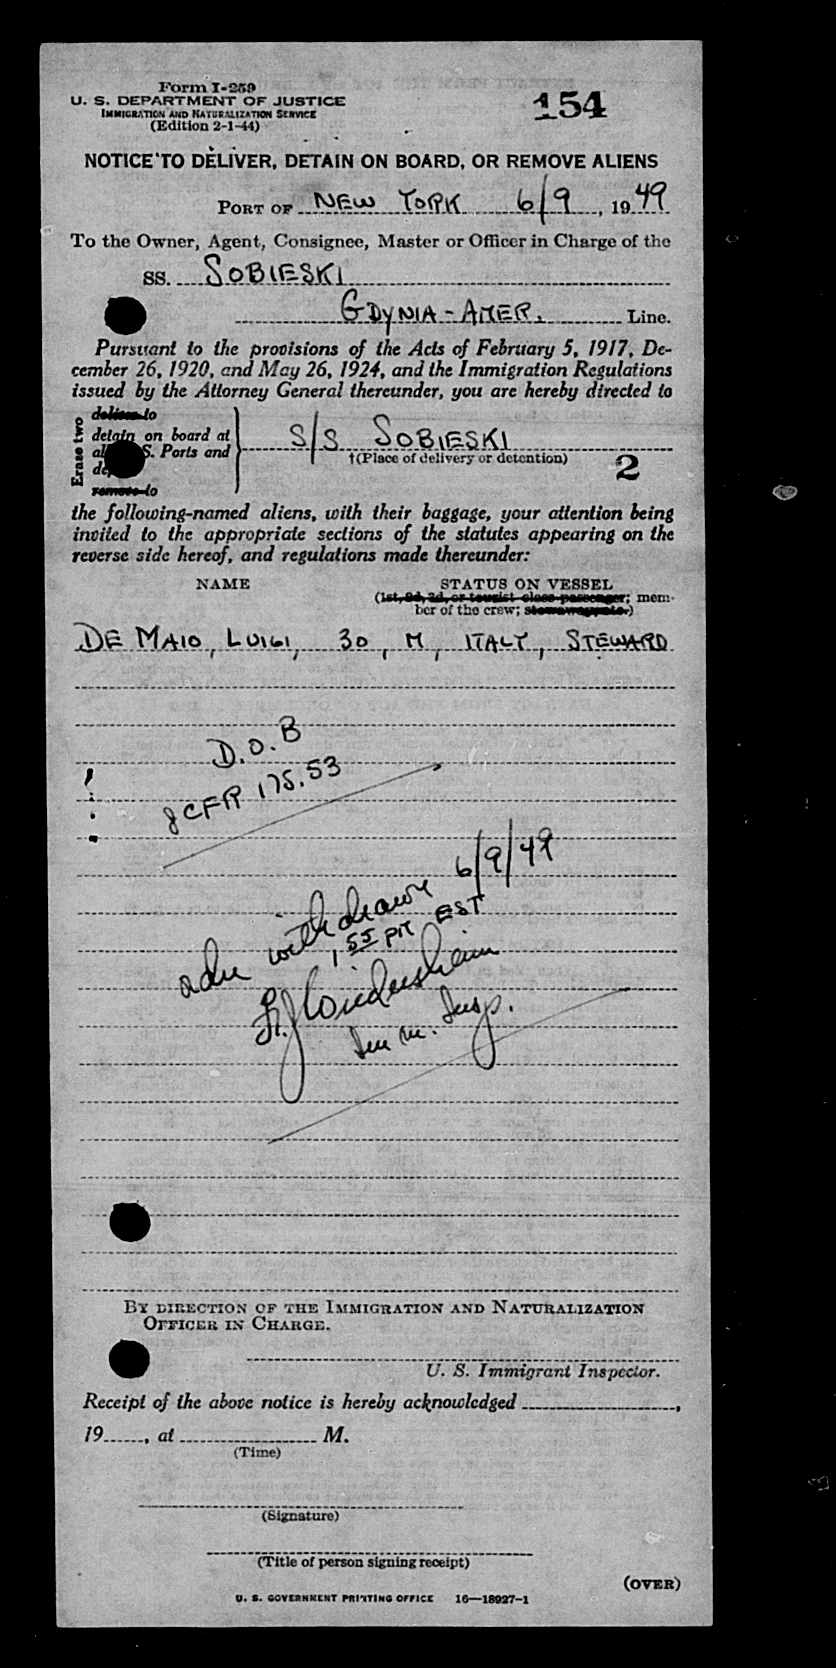 Form I-259
U. S. DEPARTMENT OF JUSTICE
IMMIGRATION AND NATURALIZATION SERVICE
(Edition 2-1-44)
154
NOTICE TO DELIVER, DETAIN ON BOARD, OR REMOVE ALIENS
PORT OF NEW YORK 6/9, 1949
To the Owner, Agent, Consignee, Master or Officer in Charge of the
SS. SOBIESKI
GDYNIA-AMER. Line.
Pursuant to the provisions of the Acts of February 5, 1917, De-
cember 26, 1920, and May 26, 1924, and the Immigration Regulations
issued by the Attorney General thereunder, you are hereby directed to
Erase two
deliver to
detain on board at
S. Ports and
remove to
S/S SOBIESKI
†(Place of delivery or detention)
2
the following-named aliens, with their baggage, your attention being
invited to the appropriate sections of the statutes appearing on the
reverse side hereof, and regulations made thereunder:
NAME STATUS ON VESSEL
(1st, 2d, 3d, or tourist class passenger; mem-
ber of the crew; stowaway, etc.)
DE MAIO, LUIGI, 30, M, ITALY, STEWARD
D.O.B
8 CFR 175.53
withdrawn 6/9/49
1 55 PM EST
Imm. Insp.
BY DIRECTION OF THE IMMIGRATION AND NATURALIZATION
OFFICER IN CHARGE.
U. S. Immigrant Inspector.
Receipt of the above notice is hereby acknowledged ,
19 , at M.
(Time)
(Signature)
(Title of person signing receipt)
(OVER)
U. S. GOVERNMENT PRINTING OFFICE 16—18927-1